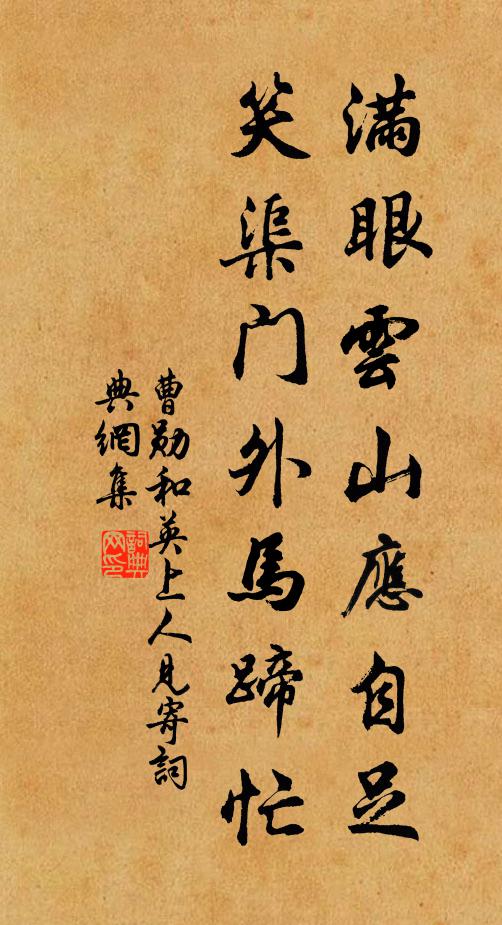 满眼雲山應自足
笑渠门外馬蹄忙
曹勋和英上人見寄詞
典網集
詞典
网印